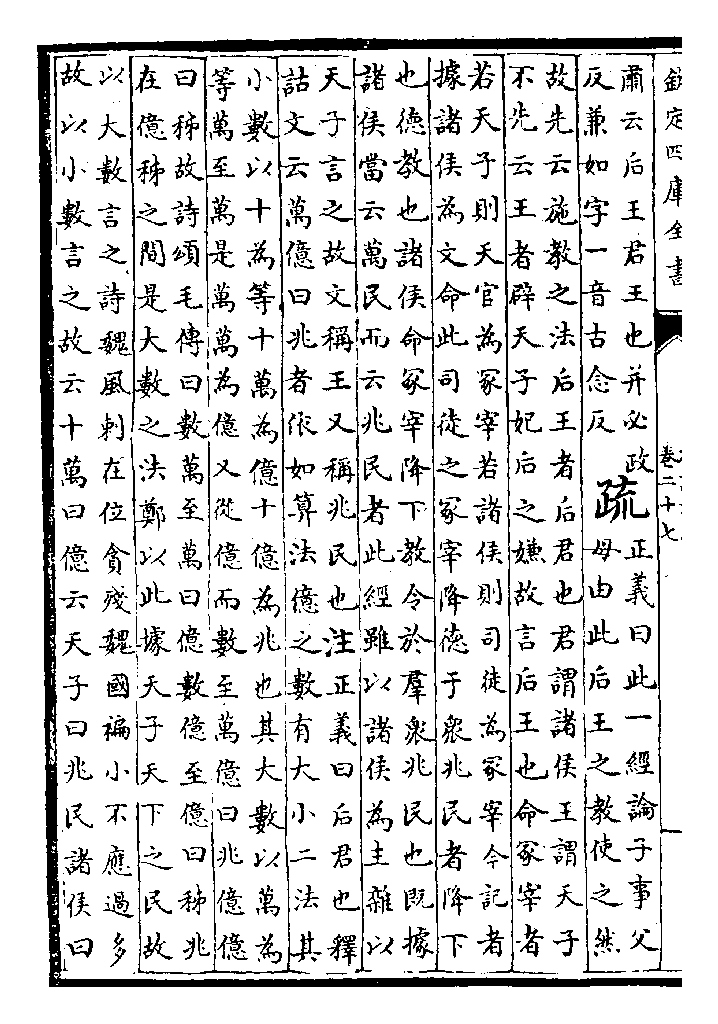 欽定四庫全書
卷二十七
肅云后王君王也并必政
反兼如字一音古念反
疏
正義曰此一經論子事父
母由此后王之教使之然
故先云施教之法后王者后君也君謂諸侯王謂天子
不先云王者辟天子妃后之嫌故言后王也命冢宰者
若天子則天官為冢宰若諸侯則司徒為冢宰今記者
據諸侯為文命此司徒之冢宰降德于衆兆民者降下
也德教也諸侯命冢宰降下教令於羣衆兆民也既據
諸侯當云萬民而云兆民者此經雖以諸侯為主雜以
天子言之故文稱王又稱兆民也注正義曰后君也釋
詁文云萬億曰兆者依如算法億之數有大小二法其
小數以十為等十萬為億十億為兆也其大數以萬為
等萬至萬是萬萬為億又從億而數至萬億曰兆億億
曰秭故詩頌毛傳曰數萬至萬曰億數億至億曰秭兆
在億秭之間是大數之法鄭以此據天子天下之民故
以大數言之詩魏風刺在位貪殘魏國褊小不應過多
故以小數言之故云十萬曰億云天子曰兆民諸侯曰